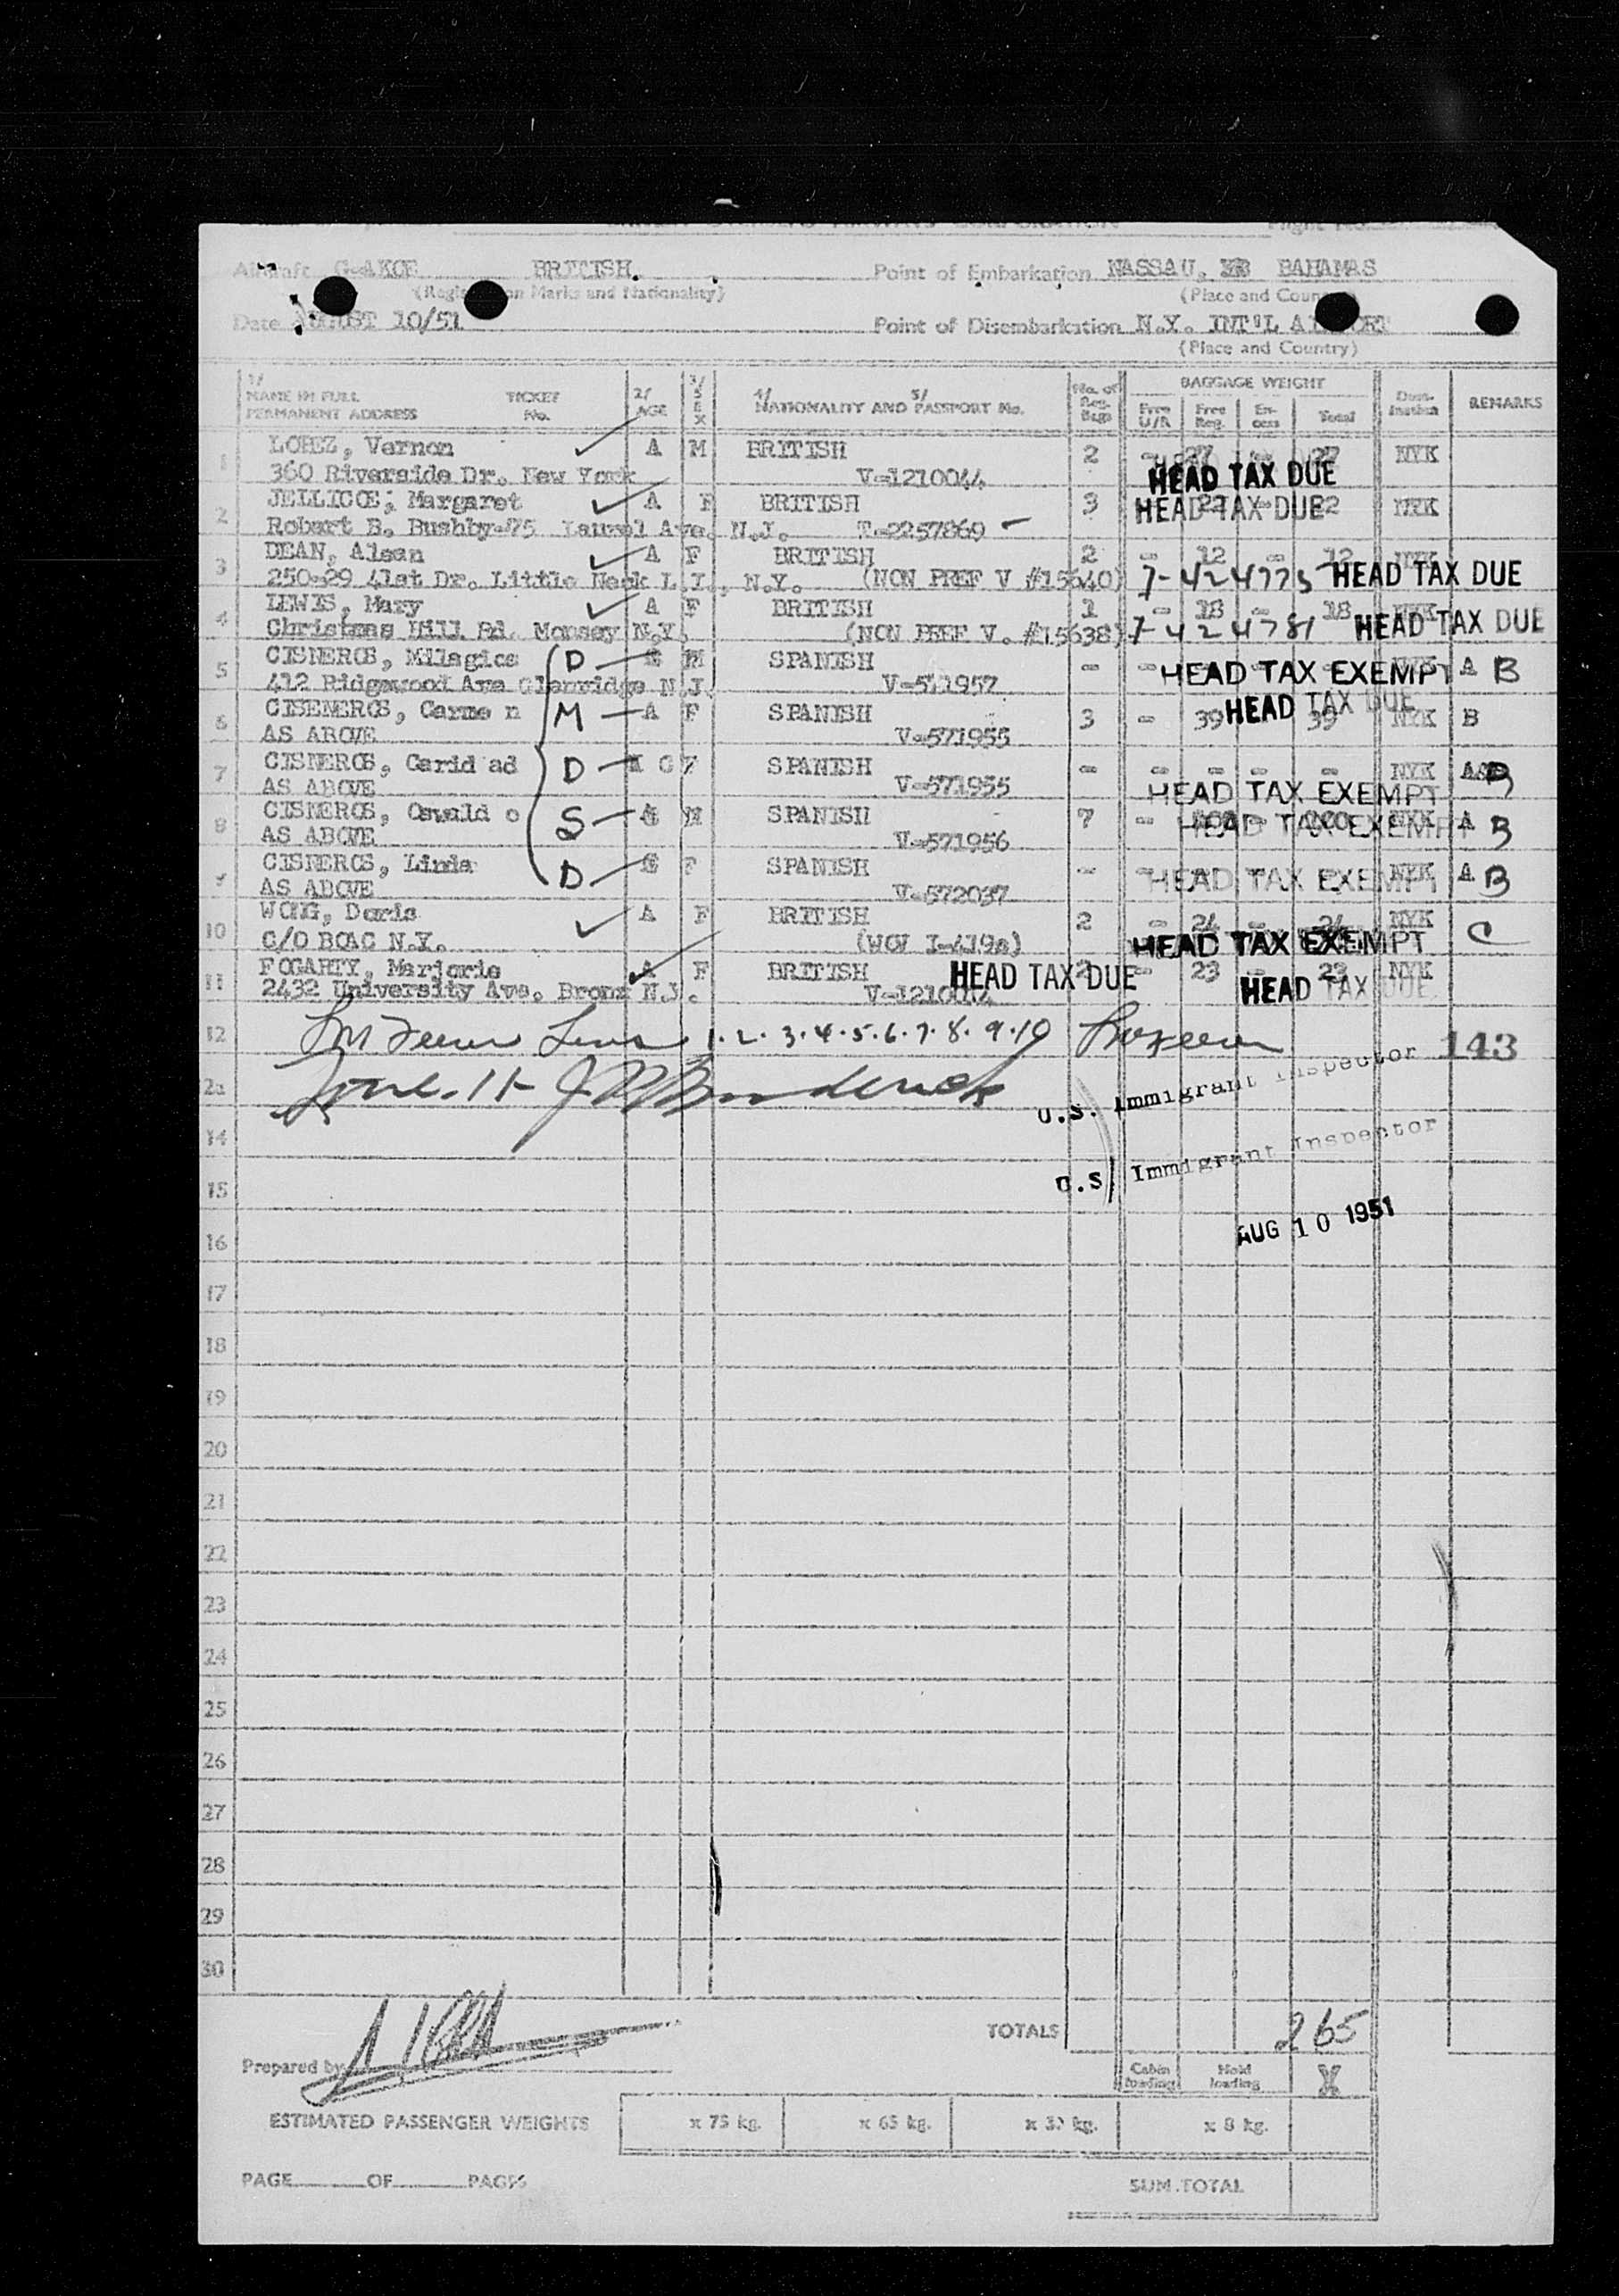 Aircraft G-AKCE BRITISH. Point of Embarkation NASSAU, BAHAMAS
(Registration Marks and Nationality) (Place and Country)
Date AUGUST 10/51 Point of Disembarkation N.Y. INT'L AIRPORT
(Place and Country)
1/ NAME IN FULL PERMANENT ADDRESS TICKET No. 2/ AGE 3/ SEX 4/ NATIONALITY AND 5/ PASSPORT No. No. of Reg. Bags BAGGAGE WEIGHT Free U/A Free Reg. Excess Total Destination REMARKS
1 LOPEZ, Vernon A M BRITISH 2 - 27 - 27 NYK
360 Riverside Dr. New York V-1210044 HEAD TAX DUE
2 JELLICOE; Margaret A F BRITISH 3 22 22 NYK HEAD TAX DUE
Robert B. Bushby-75 Laurel Ave. N.J. T-2257869
3 DEAN, Alsan A F BRITISH 2 - 12 - 12 NYK
250-29 41st Dr. Little Neck L.I., N.Y. (NON PREF V #15640) 7-424775 HEAD TAX DUE
4 LEWIS, Mary A F BRITISH 1 - 18 - 18 NYK
Christmas Hill Rd. Monsey N.Y. (NON PREF V. #15638) 7-424781 HEAD TAX DUE
5 CISNEROS, Milagics D M SPANISH - - HEAD TAX EXEMPT A B
412 Ridgewood Ave Glenridge N.J. V-571957
6 CISENEROS, Carme n M A F SPANISH 3 - 39 39 NYK B HEAD TAX DUE
AS ABOVE V-571955
7 CISNEROS, Carid ad D F SPANISH - - - - - NYK A&B
AS ABOVE V-571955 HEAD TAX EXEMPT
8 CISNEROS, Oswald o S M SPANISH 7 - NYK A B HEAD TAX EXEMPT
AS ABOVE V-571956
9 CISNEROS, Linda D F SPANISH - - NYK A B HEAD TAX EXEMPT
AS ABOVE V-572037
10 WONG, Doris A F BRITISH 2 - 24 - 24 NYK C
C/O BOAC N.Y. (WGV I-419a) HEAD TAX EXEMPT
11 FOGARTY, Marjorie A F BRITISH HEAD TAX DUE 2 - 23 - 23 NYK
2432 University Ave. Bronx N.J. V-1210014 HEAD TAX DUE
12 1.2.3.4.5.6.7.8.9.10 143
2a U.S. Immigrant Inspector
14
15 U.S. Immigrant Inspector
16 AUG 10 1951
17
18
19
20
21
22
23
24
25
26
27
28
29
30
TOTALS 265
Prepared by Cabin loading Hold loading X
ESTIMATED PASSENGER WEIGHTS x 75 kg. x 65 kg. x 30 kg. x 8 kg.
PAGE OF PAGES SUM TOTAL